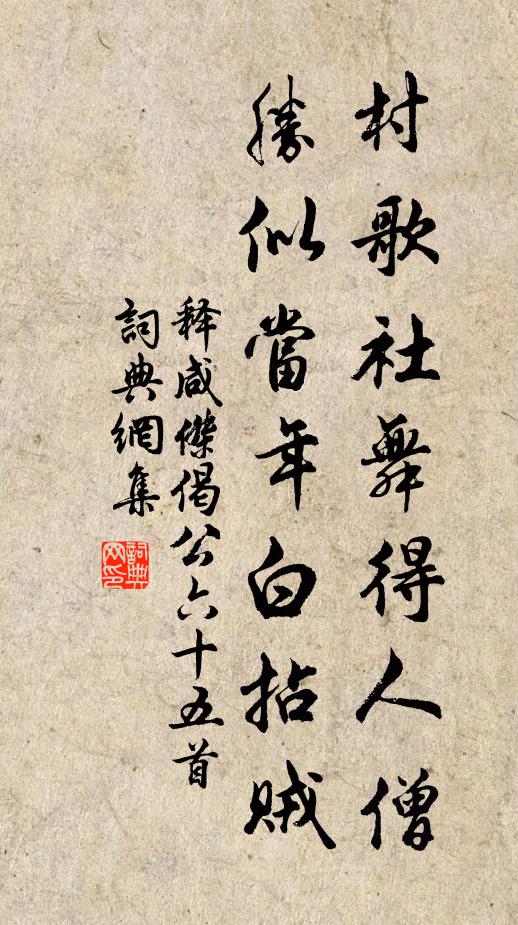 村歌社舞得人僧
勝似當年白拈賊
釋咸傑偈公六十五首
詞典網集
詞典網印